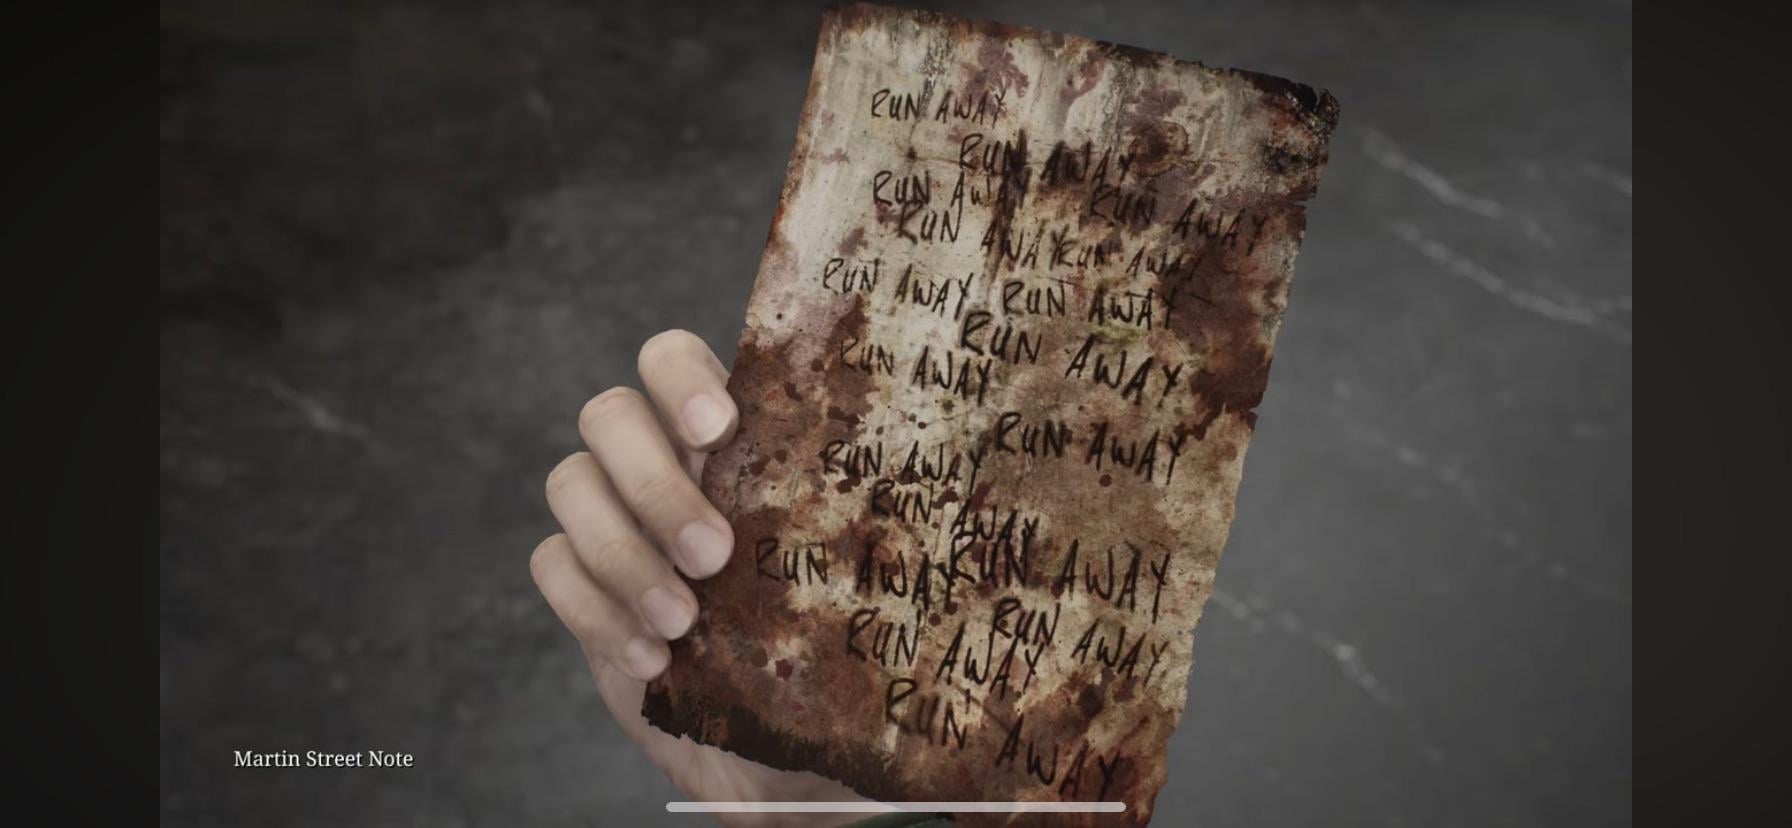 RUN AWAY
RUN AWAY
RUN AWAY RUN AWAY
RUN AWAY RUN AWAY
RUN AWAY RUN AWAY
RUN AWAY
RUN AWAY
RUN AWAY
RUN AWAY
RUN AWAY
RUN AWAY RUN AWAY
RUN AWAY
RUN AWAY
RUN AWAY
Martin Street Note